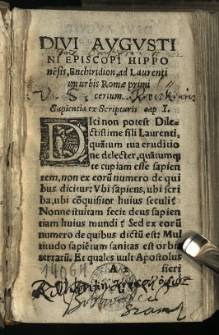 DIVI AVGVSTI
NI EPISCOPI HIPPO
nẽsis, Enchiridion, ad Laurenti
um urbis Romæ primi
cerium.
Sapientia ex Scripturis cap I.
DIci non potest Dile
ctissime fili Laurenti,
quãtum tua eruditio
ne delecter, quãtumq;
te cupiam esse sapien
tem, non ex eorũ numero de qui
bus dicitur: Vbi sapiens, ubi scri
ba, ubi cõquisitor huius seculi?
Nonne stultam fecit deus sapien
tiam huius mundi? Sed ex eorũ
numero de quibus dictũ est: Mul
titudo sapiẽtum sanitas est orbis
terrarũ. Et quales uult Apostolus
A 2 fieri
14061